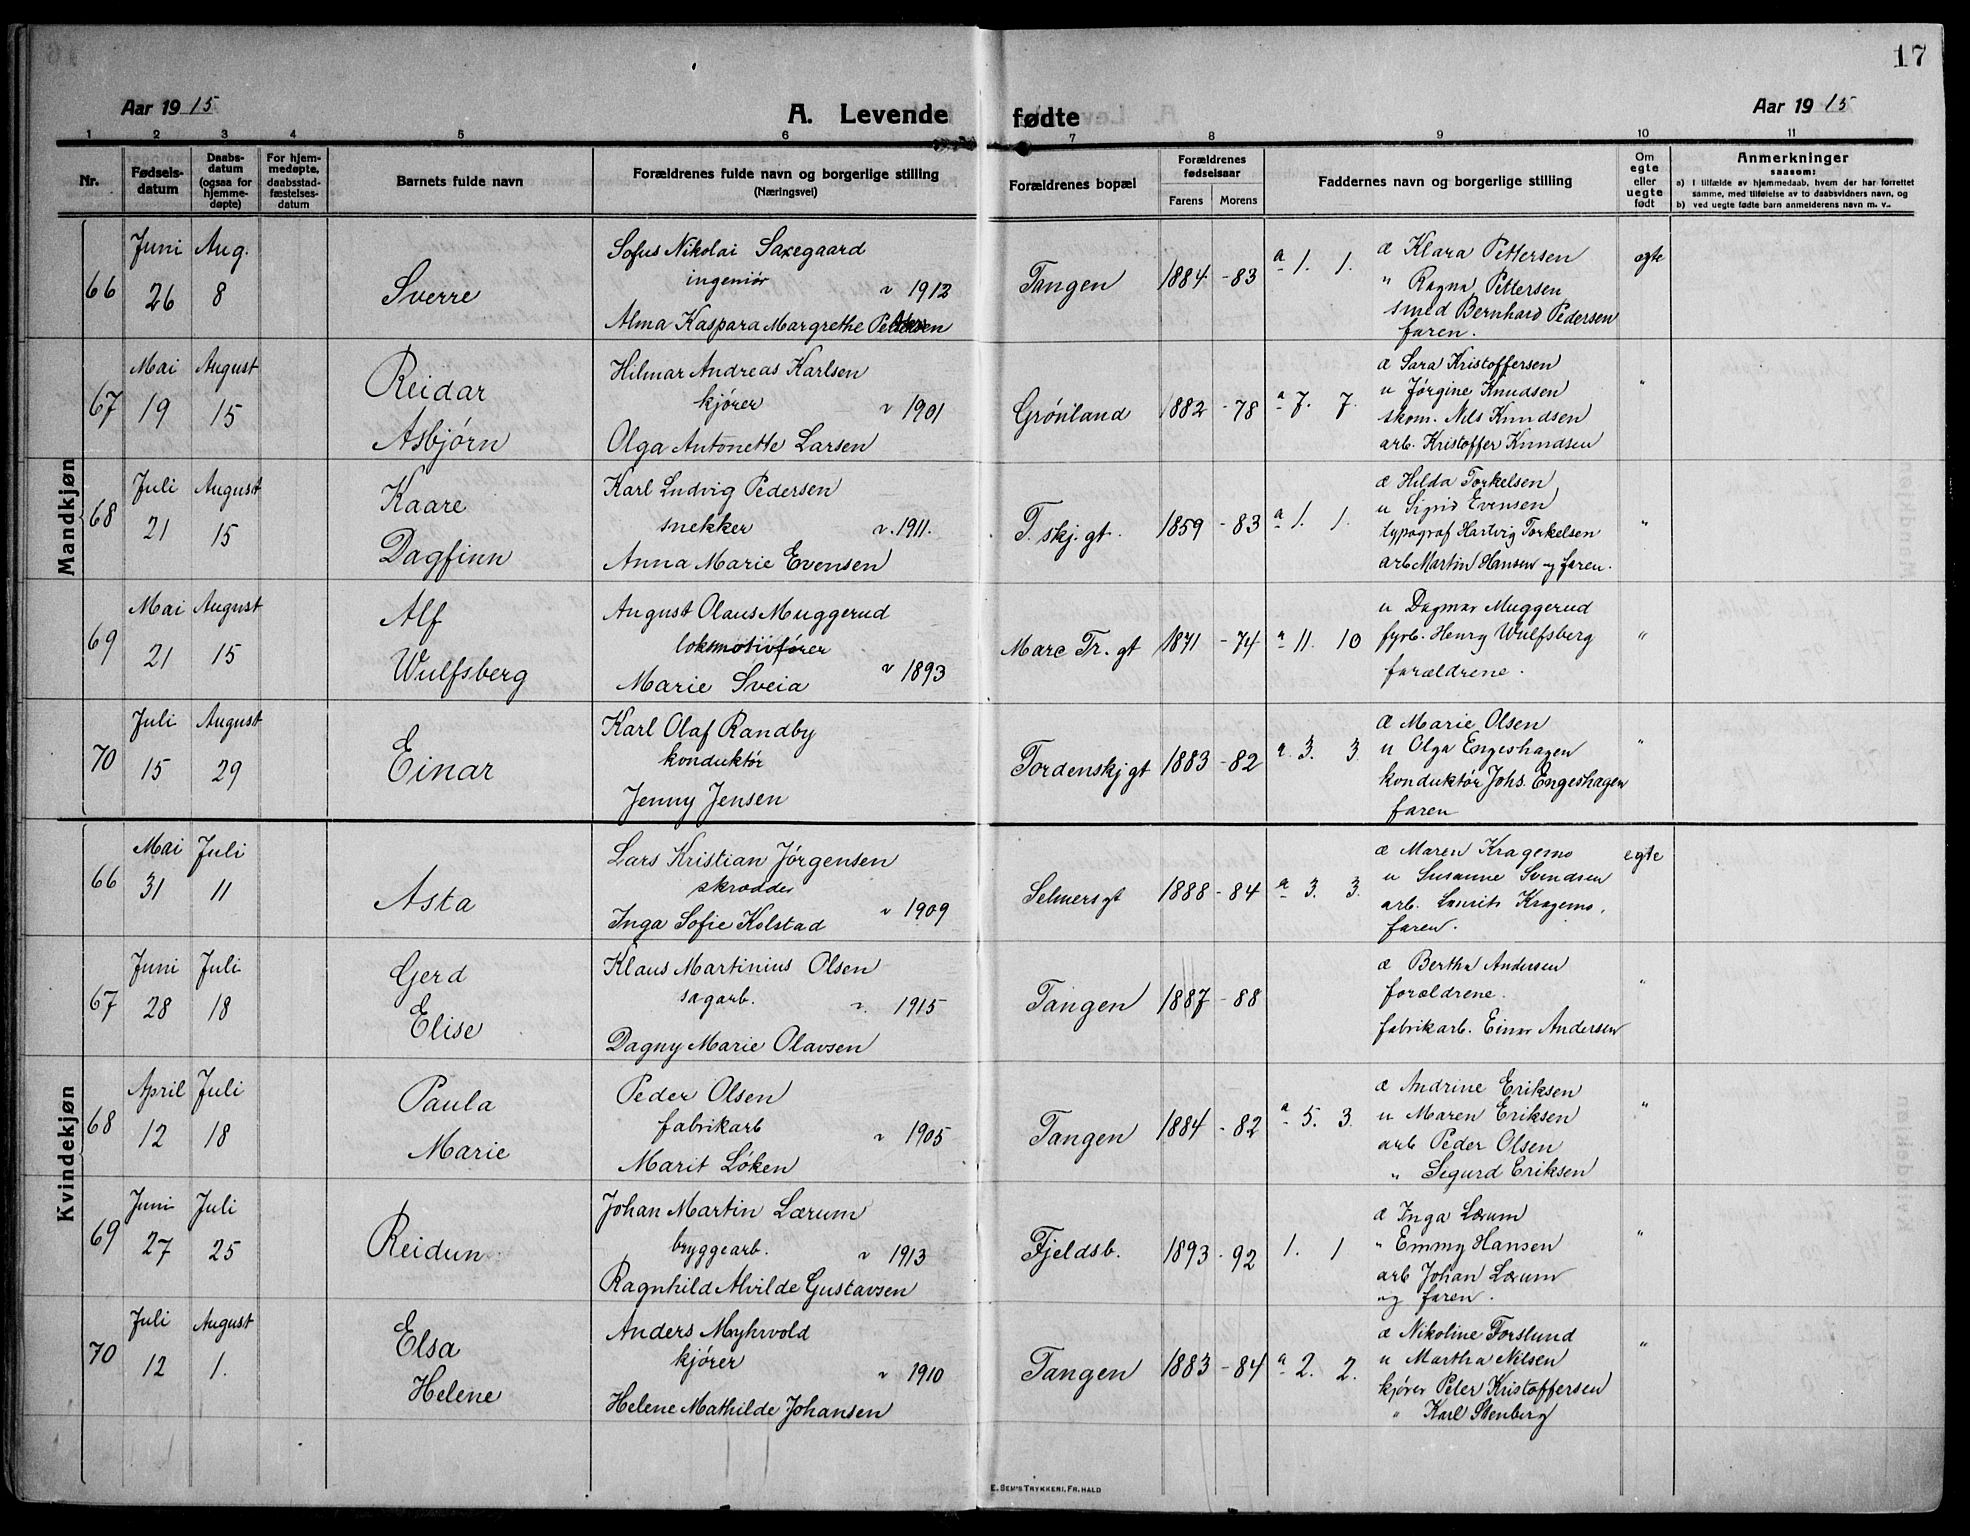 17
Aar 1915
A. Levende fødte
Aar 1915
1 2 3 4 5 6 7 8 9 10 11
Nr.
Fødselsdatum
Daabsdatum (ogsaa for hjemmedøpte)
For hjemmedøpte, daabsstadfæstelsesdatum
Barnets fulde navn
Forældrenes fulde navn og borgerlige stilling
(Næringsvei)
Forældrenes bopæl
Forældrenes fødselsaar
Farens Morens
Faddernes navn og borgerlige stilling
Om egte eller uegte født
Anmerkninger
saasom:
a) I tilfælde av hjemmedaab, hvem der har forrettet
samme, med tilføielse av to daabsvidners navn, og
b) ved uegte fødte barn anmelderens navn m. v..
Mandkjøn
66 Juni 26 Aug. 8 Sverre
Sofus Nikolai Saxegaard
ingeniør v 1912
Alma Kaspara Margrethe Pettersen
Tangen 1884 - 83 a 1. 1.
æ Klara Pettersen
" Ragna Pettersen
smed Bernhard Pedersen
faren.
egte
67 Mai 19 August 15 Reidar Asbjørn
Hilmar Andreas Karlsen
kjører v 1901
Olga Antonette Larsen
Grønland 1882 - 78 a 7. 7.
æ Sara Kristoffersen
u Jørgine Knudsen
skom. Nils Knudsen
arb. Kristoffer Knudsen
"
68 Juli 21 August 15 Kaare Dagfinn
Karl Ludvig Pedersen
snekker v. 1911.
Anna Marie Evensen
T. skj. gt. 1859 - 83 a 1. 1.
æ Hilda Torkelsen
u Sigrid Evensen
typograf Hartvig Torkelsen
arb Martin Hansen og faren.
"
69 Mai 21 August 15 Alf Wulfsberg
August Olaus Muggerud
lokomotivfører
Marie Sveia v 1893
Marc Tr. gt 1871 - 74 a 11. 10
u Dagmar Muggerud
fyrb. Henry Wulfsberg
forældrene.
"
70 Juli 15 August 29 Einar
Karl Olaf Randby
konduktør
Jenny Jensen
Tordenskj gt 1883 - 82 a. 3. 3.
æ Marie Olsen
u Olga Engeshagen
konduktør Johs. Engeshagen
faren
"
Kvindekjøn
66 Mai 31 Juli 11 Asta
Lars Kristian Jørgensen
skrædder
Inga Sofie Kolstad v 1909
Selmersgt 1888 - 84 a 3. 3.
æ Maren Kragemo
u Susanne Svendsen
arb. Laurits Kragemo.
faren.
egte
67 Juni 28 Juli 18 Gerd Elise
Klaus Martinius Olsen
sagarb. v. 1915
Dagny Marie Olavsen
Tangen 1887 - 88
æ Bertha Andersen
forældrene.
fabrikarb. Einar Andersen
"
68 April 12 Juli 18 Paula Marie
Peder Olsen
fabrikarb v 1905
Marit Løken
Tangen 1884 - 82 a 5. 3.
æ Andrine Eriksen
u Maren Eriksen
arb Peder Olsen
" Sigurd Eriksen
"
69 Juni 27 Juli 25 Reidun
Johan Martin Lærum
bryggearb. v 1913
Ragnhild Alvilde Gustavsen
Fjeldsb. 1893 - 92 1. 1
æ Inga Lærum
" Emmy Hansen
arb Johan Lærum
og faren.
"
70 Juli 12 August 1. Elsa Helene
Anders Myhrvold
kjører v 1910
Helene Mathilde Johansen
Tangen 1883 - 84 a 2. 2.
æ Nikoline Forslund
u Martha Nilsen
kjører Peter Kristoffersen
" Karl Stenberg
"
E. SEM'S TRYKKERI, FR. HALD